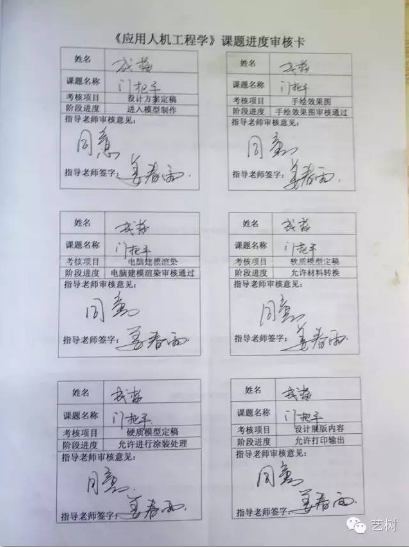 《应用人机工程学》课题进度审核卡
姓名
课题名称 门把手
考核项目 设计方案定稿
阶段进度 进入模型制作
指导老师审核意见:
同意
指导老师签字: 姜春雨
姓名
课题名称 门把手
考核项目 手绘效果图
阶段进度 手绘效果图审核通过
指导老师审核意见:
同意
指导老师签字: 姜春雨
姓名
课题名称 门把手
考核项目 电脑建模渲染
阶段进度 电脑建模渲染审核通过
指导老师审核意见:
同意
指导老师签字: 姜春雨
姓名
课题名称 门把手
考核项目 软质模型定稿
阶段进度 允许材料转换
指导老师审核意见:
同意
指导老师签字: 姜春雨
姓名
课题名称 门把手
考核项目 硬质模型定稿
阶段进度 允许进行涂装处理
指导老师审核意见:
同意
指导老师签字: 姜春雨
姓名
课题名称 门把手
考核项目 设计展版内容
阶段进度 允许打印输出
指导老师审核意见:
同意
指导老师签字: 姜春雨
艺树